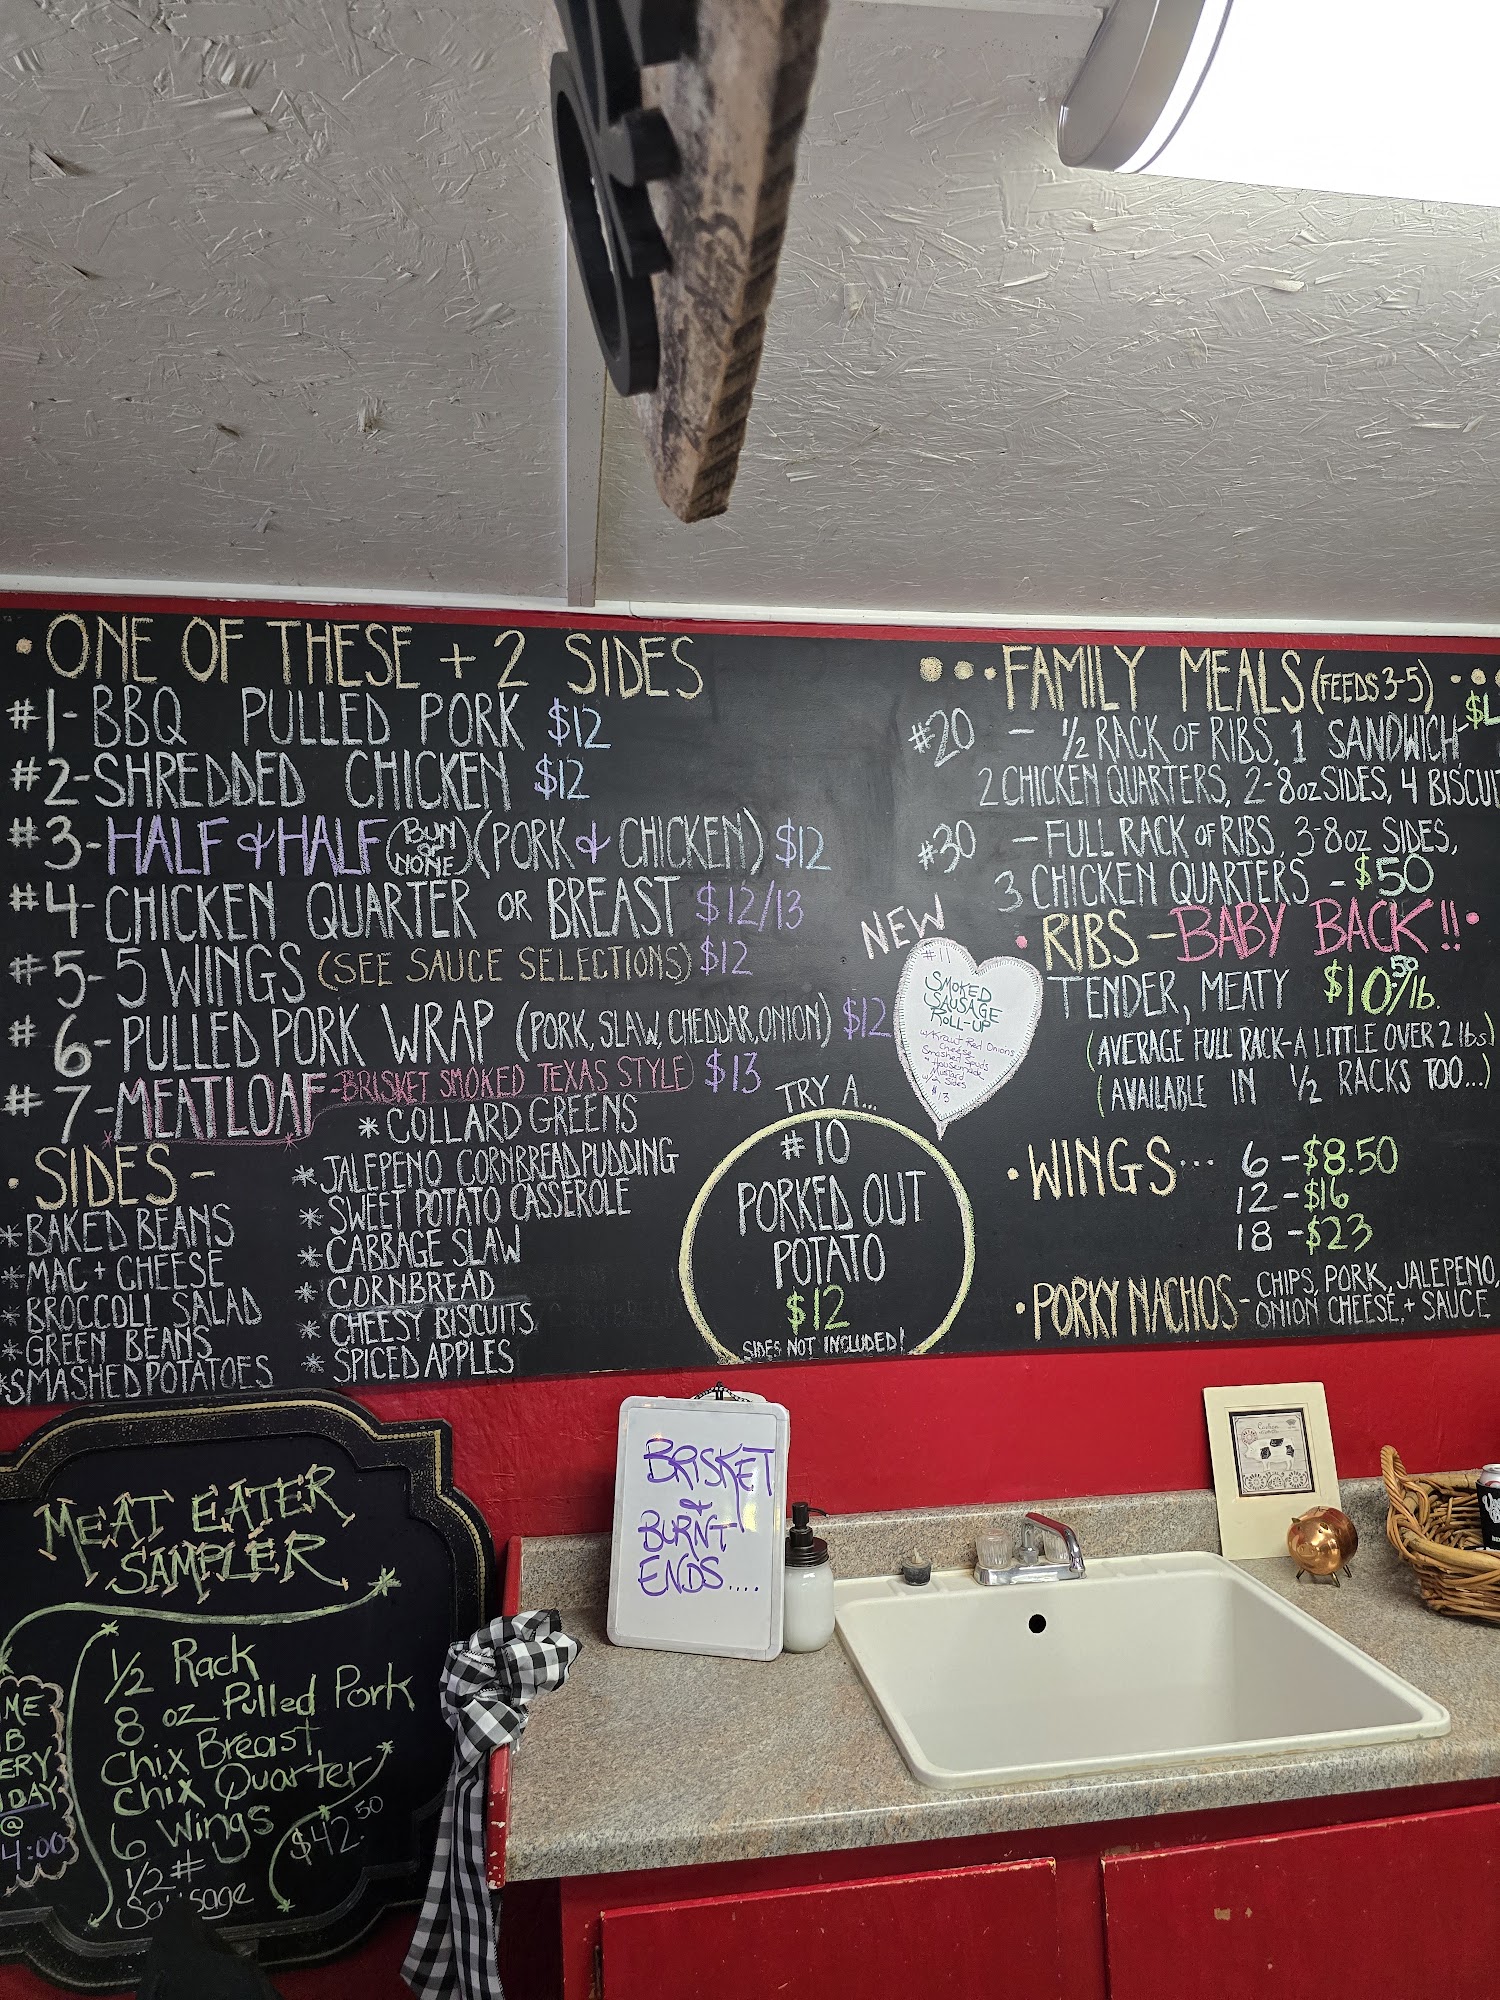 • ONE OF THESE + 2 SIDES
#1- BBQ PULLED PORK $12
#2- SHREDDED CHICKEN $12
#3- HALF & HALF (BUN OR NONE) (PORK & CHICKEN) $12
#4- CHICKEN QUARTER OR BREAST $12/13
#5- 5 WINGS (SEE SAUCE SELECTIONS) $12
#6- PULLED PORK WRAP (PORK, SLAW, CHEDDAR, ONION) $12
#7- MEATLOAF - BRISKET SMOKED TEXAS STYLE) $13
• SIDES -
* BAKED BEANS
* MAC + CHEESE
* BROCCOLI SALAD
* GREEN BEANS
* SMASHED POTATOES
* COLLARD GREENS
* JALEPENO CORNBREAD PUDDING
* SWEET POTATO CASSEROLE
* CABBAGE SLAW
* CORNBREAD
* CHEESY BISCUITS
* SPICED APPLES
TRY A...
#10
PORKED OUT
POTATO
$12
SIDES NOT INCLUDED!
NEW
#11
SMOKED
SAUSAGE
ROLL-UP
w/ Kraut Red Onions
Cheese
Smashed
Mustard
2 Sides
$13
••• FAMILY MEALS (FEEDS 3-5) •••
#20 - 1/2 RACK OF RIBS, 1 SANDWICH
2 CHICKEN QUARTERS, 2-8oz SIDES, 4 BISCUI
#30 - FULL RACK OF RIBS, 3-8oz SIDES,
3 CHICKEN QUARTERS - $50
• RIBS - BABY BACK!! •
TENDER, MEATY $10.50/lb.
(AVERAGE FULL RACK - A LITTLE OVER 2 lbs)
(AVAILABLE IN 1/2 RACKS TOO...)
• WINGS... 6 - $8.50
12 - $16
18 - $23
• PORKY NACHOS - CHIPS, PORK, JALEPENO,
ONION CHEESE, + SAUCE
MEAT EATER
SAMPLER
1/2 Rack
8 oz Pulled Pork
Chix Breast
Chix Quarter
6 Wings
1/2 #
Sausage
$42.50
ME
B
ERY
DAY
@
4:00
BRISKET
&
BURNT
ENDS....